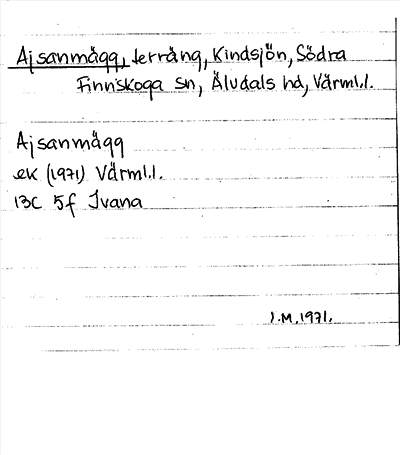 Ajsanmägg, terräng, Kindsjön, Södra
Finnskoga sn, Älvdals hd, Värml.l.
Ajsanmägg
ek (1971) Värml.l.
13C 5f Ivana
J.M, 1971.